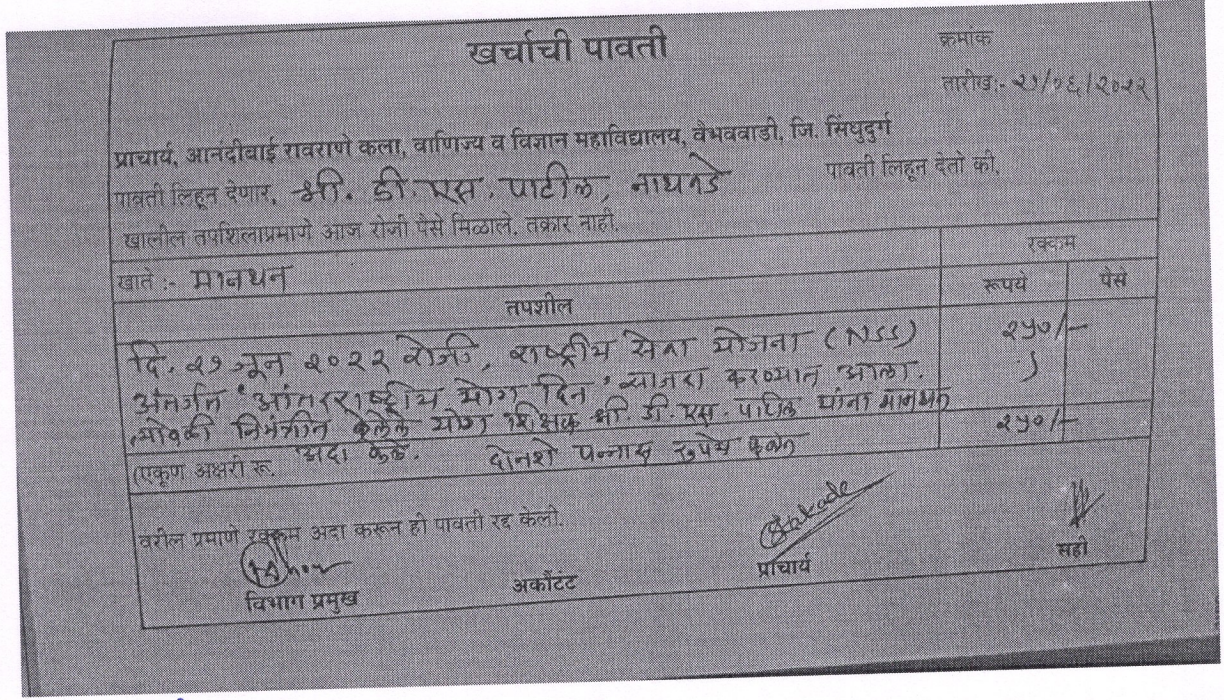 खर्चाची पावती
क्रमांक
तारीख:- २१/०६/२०२२
प्राचार्य, आनंदीबाई रावराणे कला, वाणिज्य व विज्ञान महाविद्यालय, वैभववाडी, जि. सिंधुदुर्ग
पावती लिहून देणार, श्री. डी. एस. पाटील, नाधवडे पावती लिहून देतो की,
खालील तपशिलाप्रमाणे आज रोजी पैसे मिळाले. तक्रार नाही.
खाते :- मानधन रक्कम
तपशील रूपये पैसे
दि. २१ जून २०२२ रोजी, राष्ट्रीय सेवा योजना (NSS) २५०/-
अंतर्गत 'आंतरराष्ट्रीय योग दिन' साजरा करण्यात आला.
यावेळी निमंत्रीत केलेले योग शिक्षक श्री. डी. एस. पाटिल यांना मानधन
अदा केले. २५०/-
(एकूण अक्षरी रू. दोनशे पन्नास रुपये फक्त
वरील प्रमाणे रक्कम अदा करून ही पावती रद्द केली.
विभाग प्रमुख अकौंटंट प्राचार्य सही